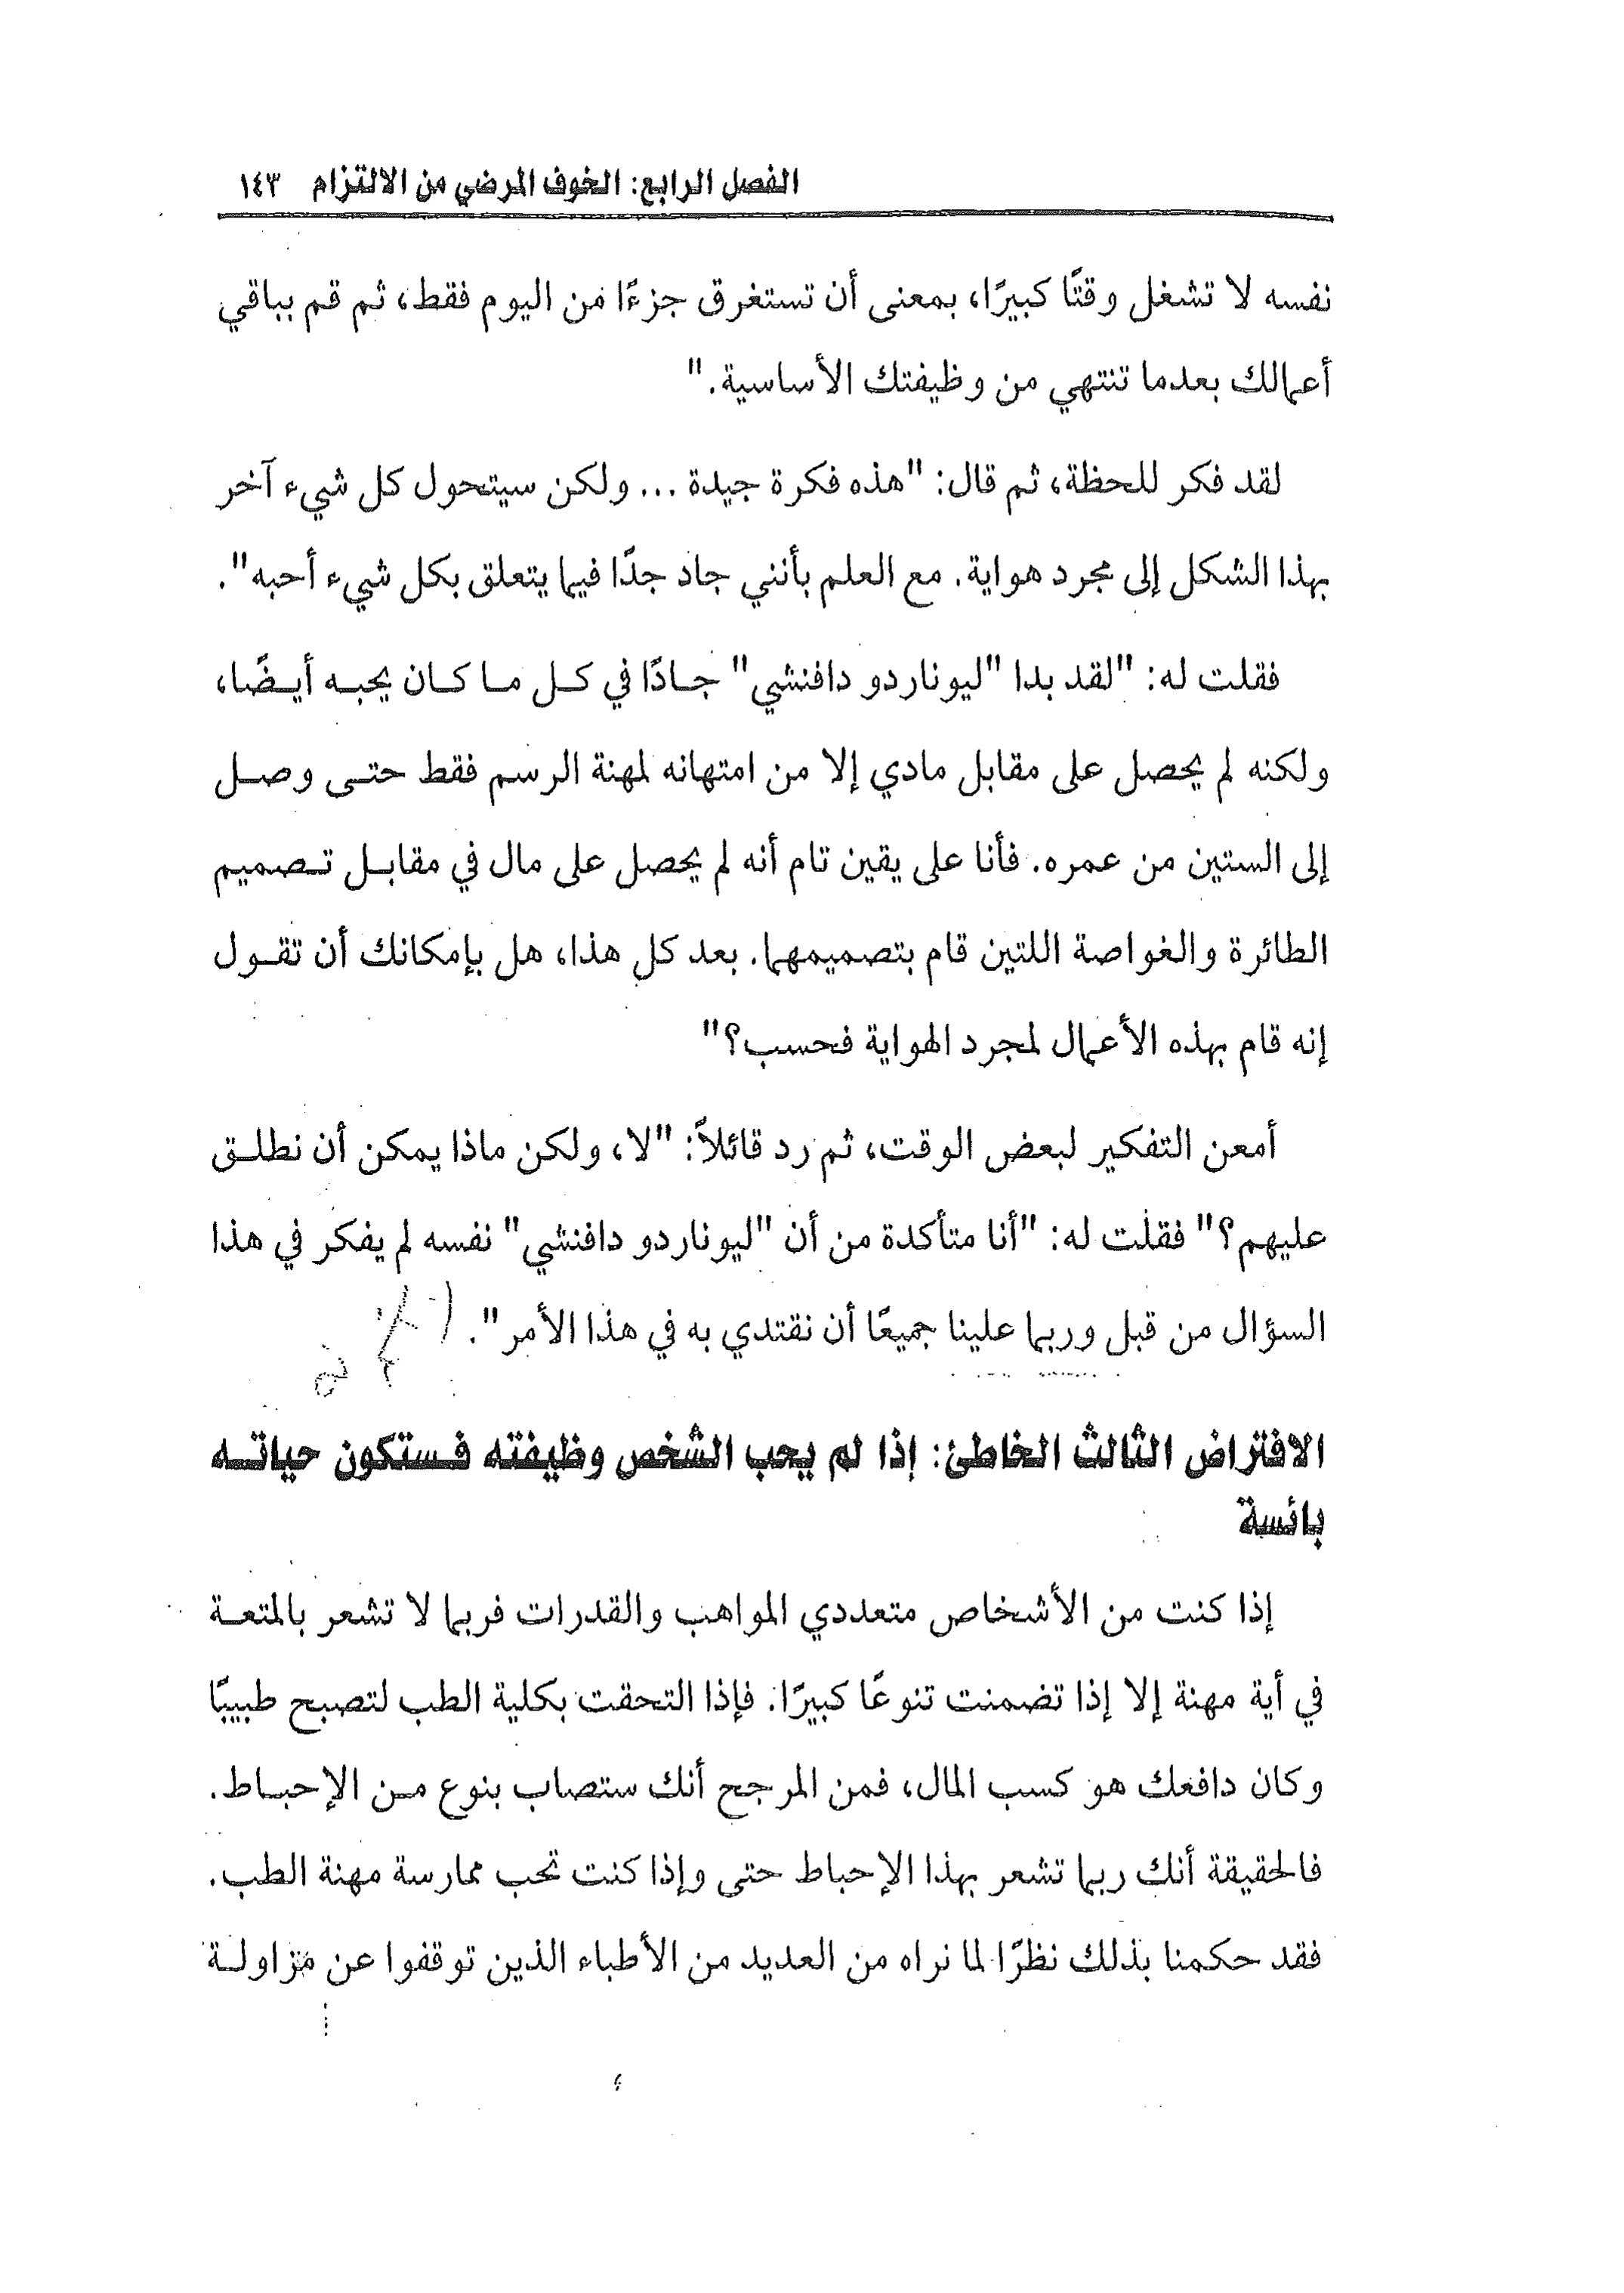 الفصل الرابع: الخوف المرضي من الالتزام ١٤٣
نفسه لا تشغل وقتًا كبيرًا، بمعنى أن تستغرق جزءًا من اليوم فقط، ثم قم بباقي
أعمالك بعدما تنتهي من وظيفتك الأساسية."
لقد فكر للحظة، ثم قال: "هذه فكرة جيدة ... ولكن سيتحول كل شيء آخر
بهذا الشكل إلى مجرد هواية. مع العلم بأنني جاد جدًا فيما يتعلق بكل شيء أحبه".
فقلت له: "لقد بدا "ليوناردو دافنشي" جـادًا في كـل مـا كـان يحبـه أيـضًا،
ولكنه لم يحصل على مقابل مادي إلا من امتهانه لمهنة الرسم فقط حتـى وصـل
إلى الستين من عمره. فأنا على يقين تام أنه لم يحصل على مال في مقابـل تـصميم
الطائرة والغواصة اللتين قام بتصميمهما. بعد كل هذا، هل بإمكانك أن تقـول
إنه قام بهذه الأعمال لمجرد الهواية فحسب؟"
أمعن التفكير لبعض الوقت، ثم رد قائلاً: "لا، ولكن ماذا يمكن أن نطلـق
عليهم؟" فقلت له: "أنا متأكدة من أن "ليوناردو دافنشي" نفسه لم يفكر في هذا
السؤال من قبل وربما علينا جميعًا أن نقتدي به في هذا الأمر".
الافتراض الثالث الخاطئ: إذا لم يحب الشخص وظيفته فـستكون حياتـه
بائسة
إذا كنت من الأشخاص متعددي المواهب والقدرات فربما لا تشعر بالمتعـة
في أية مهنة إلا إذا تضمنت تنوعًا كبيرًا. فإذا التحقت بكلية الطب لتصبح طبيبًا
وكان دافعك هو كسب المال، فمن المرجح أنك ستصاب بنوع مـن الإحبـاط.
فالحقيقة أنك ربما تشعر بهذا الإحباط حتى وإذا كنت تحب ممارسة مهنة الطب.
فقد حكمنا بذلك نظرًا لما نراه من العديد من الأطباء الذين توقفوا عن مزاولـة